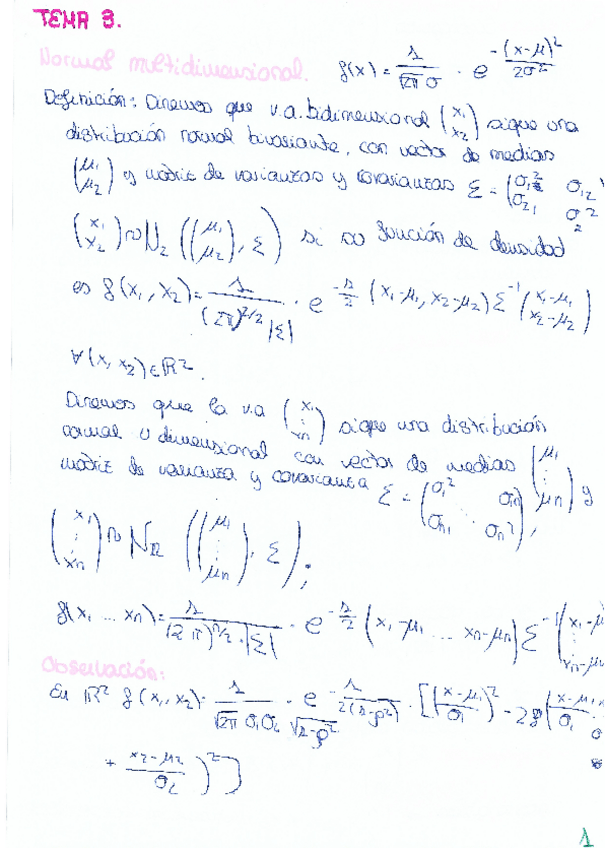 TEMA 3.
Normal multidimensional. f(x) = 1/(√2π σ) · e^(-(x-μ)²/2σ²)
Definición: Diremos que v.a. bidimensional (x₁ x₂) sigue una
distribución normal bivariante, con vector de medias
(μ₁ μ₂) y matriz de varianzas y covarianzas Σ = (σ₁² σ₁₂ σ₂₁ σ₂²)
(x₁ x₂) ~ N₂ ((μ₁ μ₂), Σ) si su función de densidad
es f(x₁, x₂) = 1/((2π)^(2/2) |Σ|) · e^(-1/2) (x₁-μ₁, x₂-μ₂) Σ⁻¹ (x₁-μ₁ x₂-μ₂)
∀(x, x₂) ∈ ℝ².
Diremos que la v.a (x₁ ⋮ xn) sigue una distribución
normal n dimensional con vector de medias (μ₁ ⋮ μn) y
matriz de varianza y covarianza Σ = (σ₁² σ₁n σn₁ ⋱ σn²),
(x₁ ⋮ xn) ~ Nn ((μ₁ ⋮ μn), Σ);
f(x₁ ... xn) = 1/((2π)^(n/2) · |Σ|) · e^(-1/2) (x₁-μ₁ ... xn-μn) Σ⁻¹ (x₁-μ ⋮ xn-μ
Observación:
En ℝ² f(x₁, x₂) = 1/(√2π σ₁σ₂ √1-ρ²) · e^(-1/2(1-ρ²)) · [((x-μ₁)/σ₁)² - 2ρ((x-μ₁)/σ₁
+ (x₂-μ₂)/σ₂)²]
1